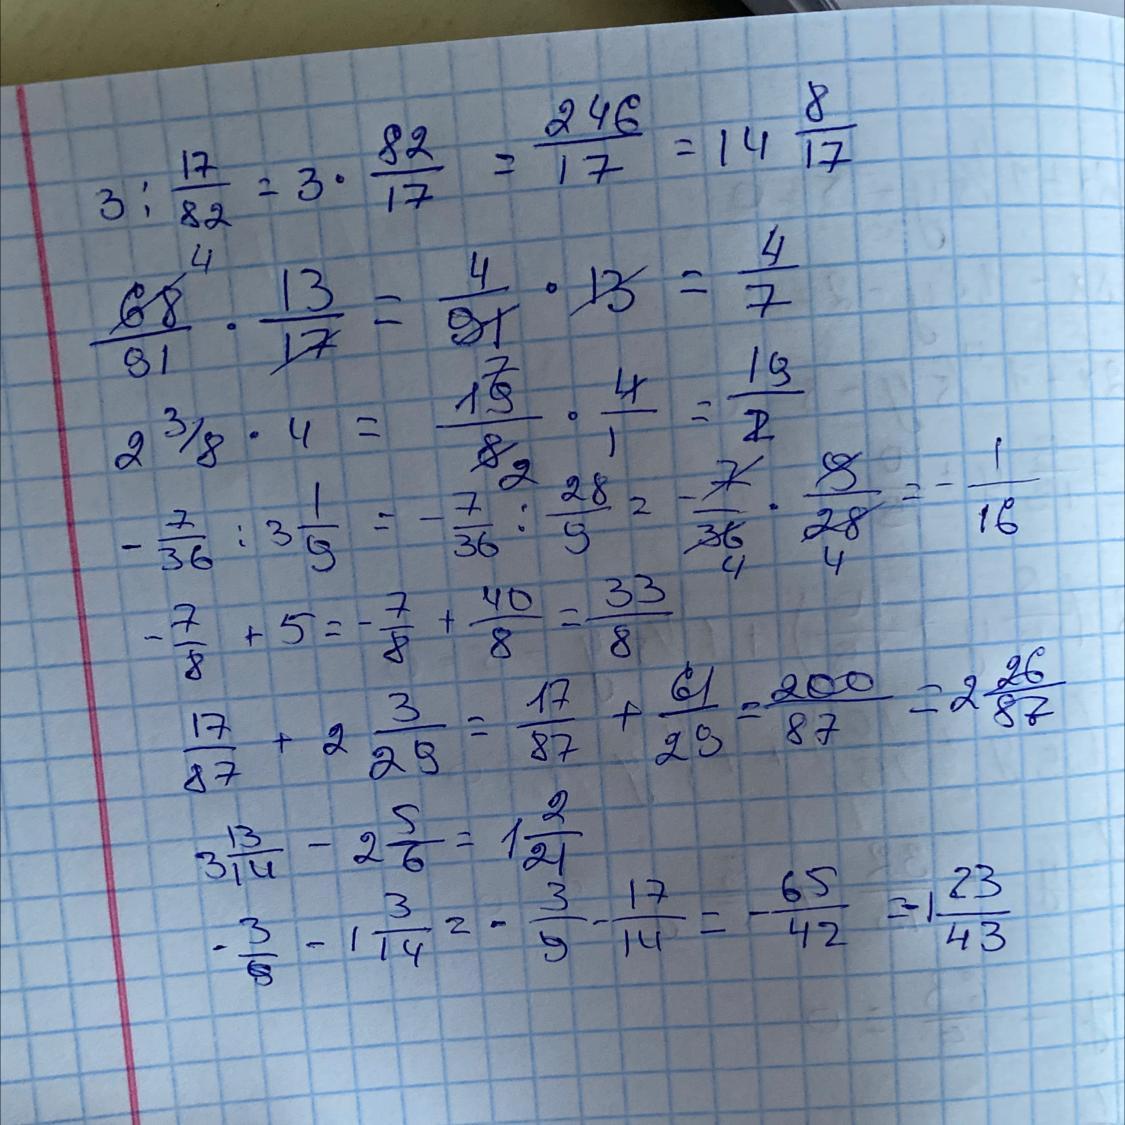 3 : 17/82 = 3 · 82/17 = 246/17 = 14 8/17
68/91 4 · 13/17 = 4/91 · 13 = 4/7
2 3/8 · 4 = 19/8 2 · 4/1 = 19/2
- 7/36 : 3 1/9 = - 7/36 : 28/9 = - 7/36 4 · 9/28 4 = - 1/16
- 7/8 + 5 = - 7/8 + 40/8 = 33/8
17/87 + 2 3/29 = 17/87 + 61/29 = 200/87 = 2 26/87
3 13/14 - 2 5/6 = 1 2/21
- 3/9 - 1 3/14 = - 3/9 - 17/14 = - 65/42 = -1 23/43